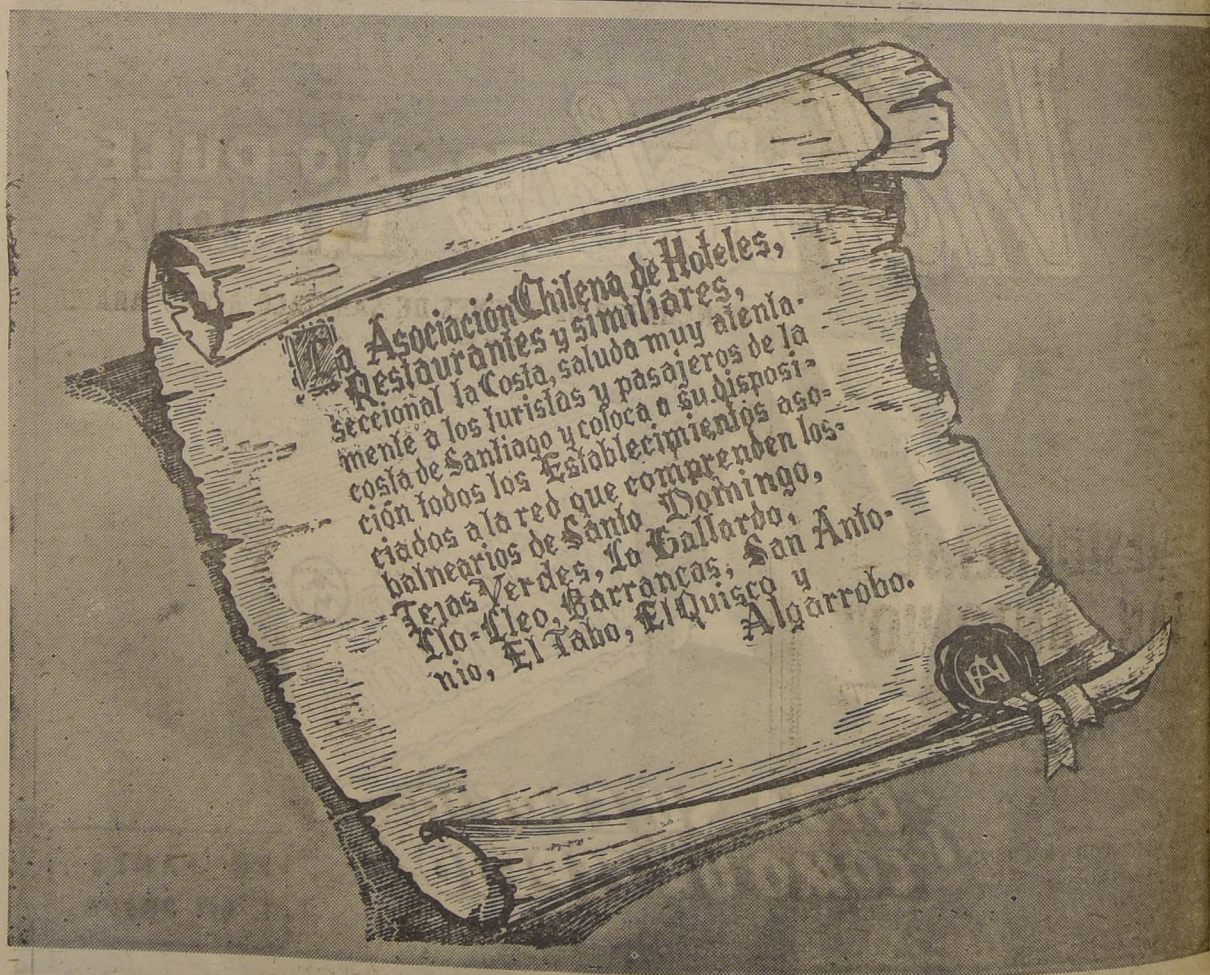 La Asociación Chilena de Hoteles,
Restaurantes y similiares,
seccional la Costa, saluda muy atenta-
mente a los turistas y pasajeros de la
costa de Santiago y coloca a su disposi-
ción todos los Establecimientos aso-
ciados a la red que comprenden los
balnearios de Santo Domingo,
Tejas Verdes, Lo Gallardo,
Llo-Lleo, Barrancas, San Anto-
nio, El Tabo, El Quisco y
Algarrobo.